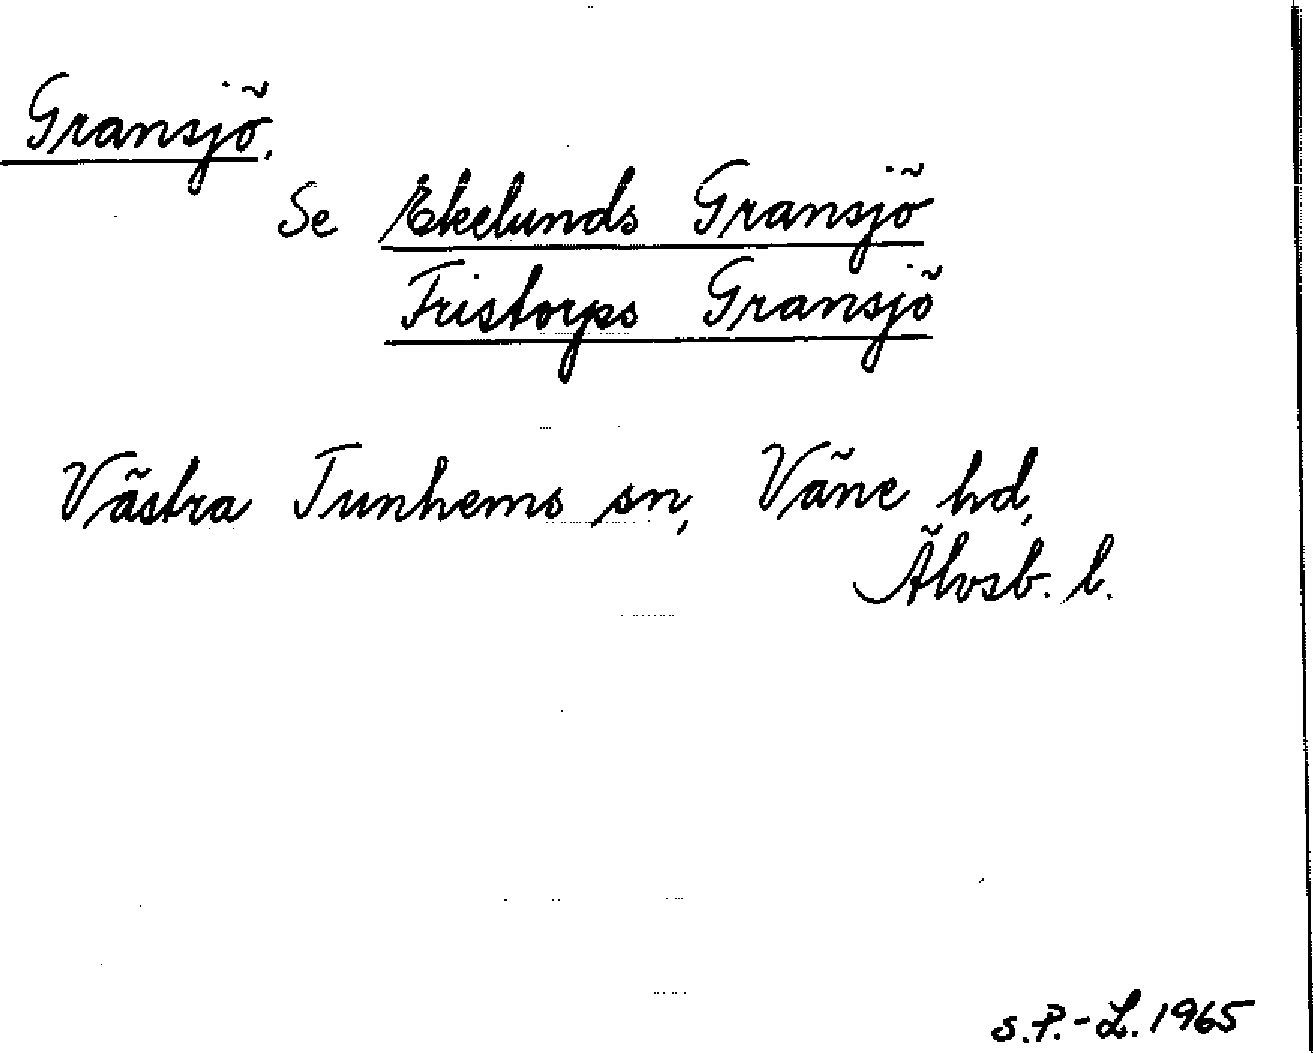 Gransjö.
Se Ekelunds Gransjö
Fristorps Gransjö
Västra Tunhems sn, Väne hd,
Älvsb. l.
S.P.-L. 1965